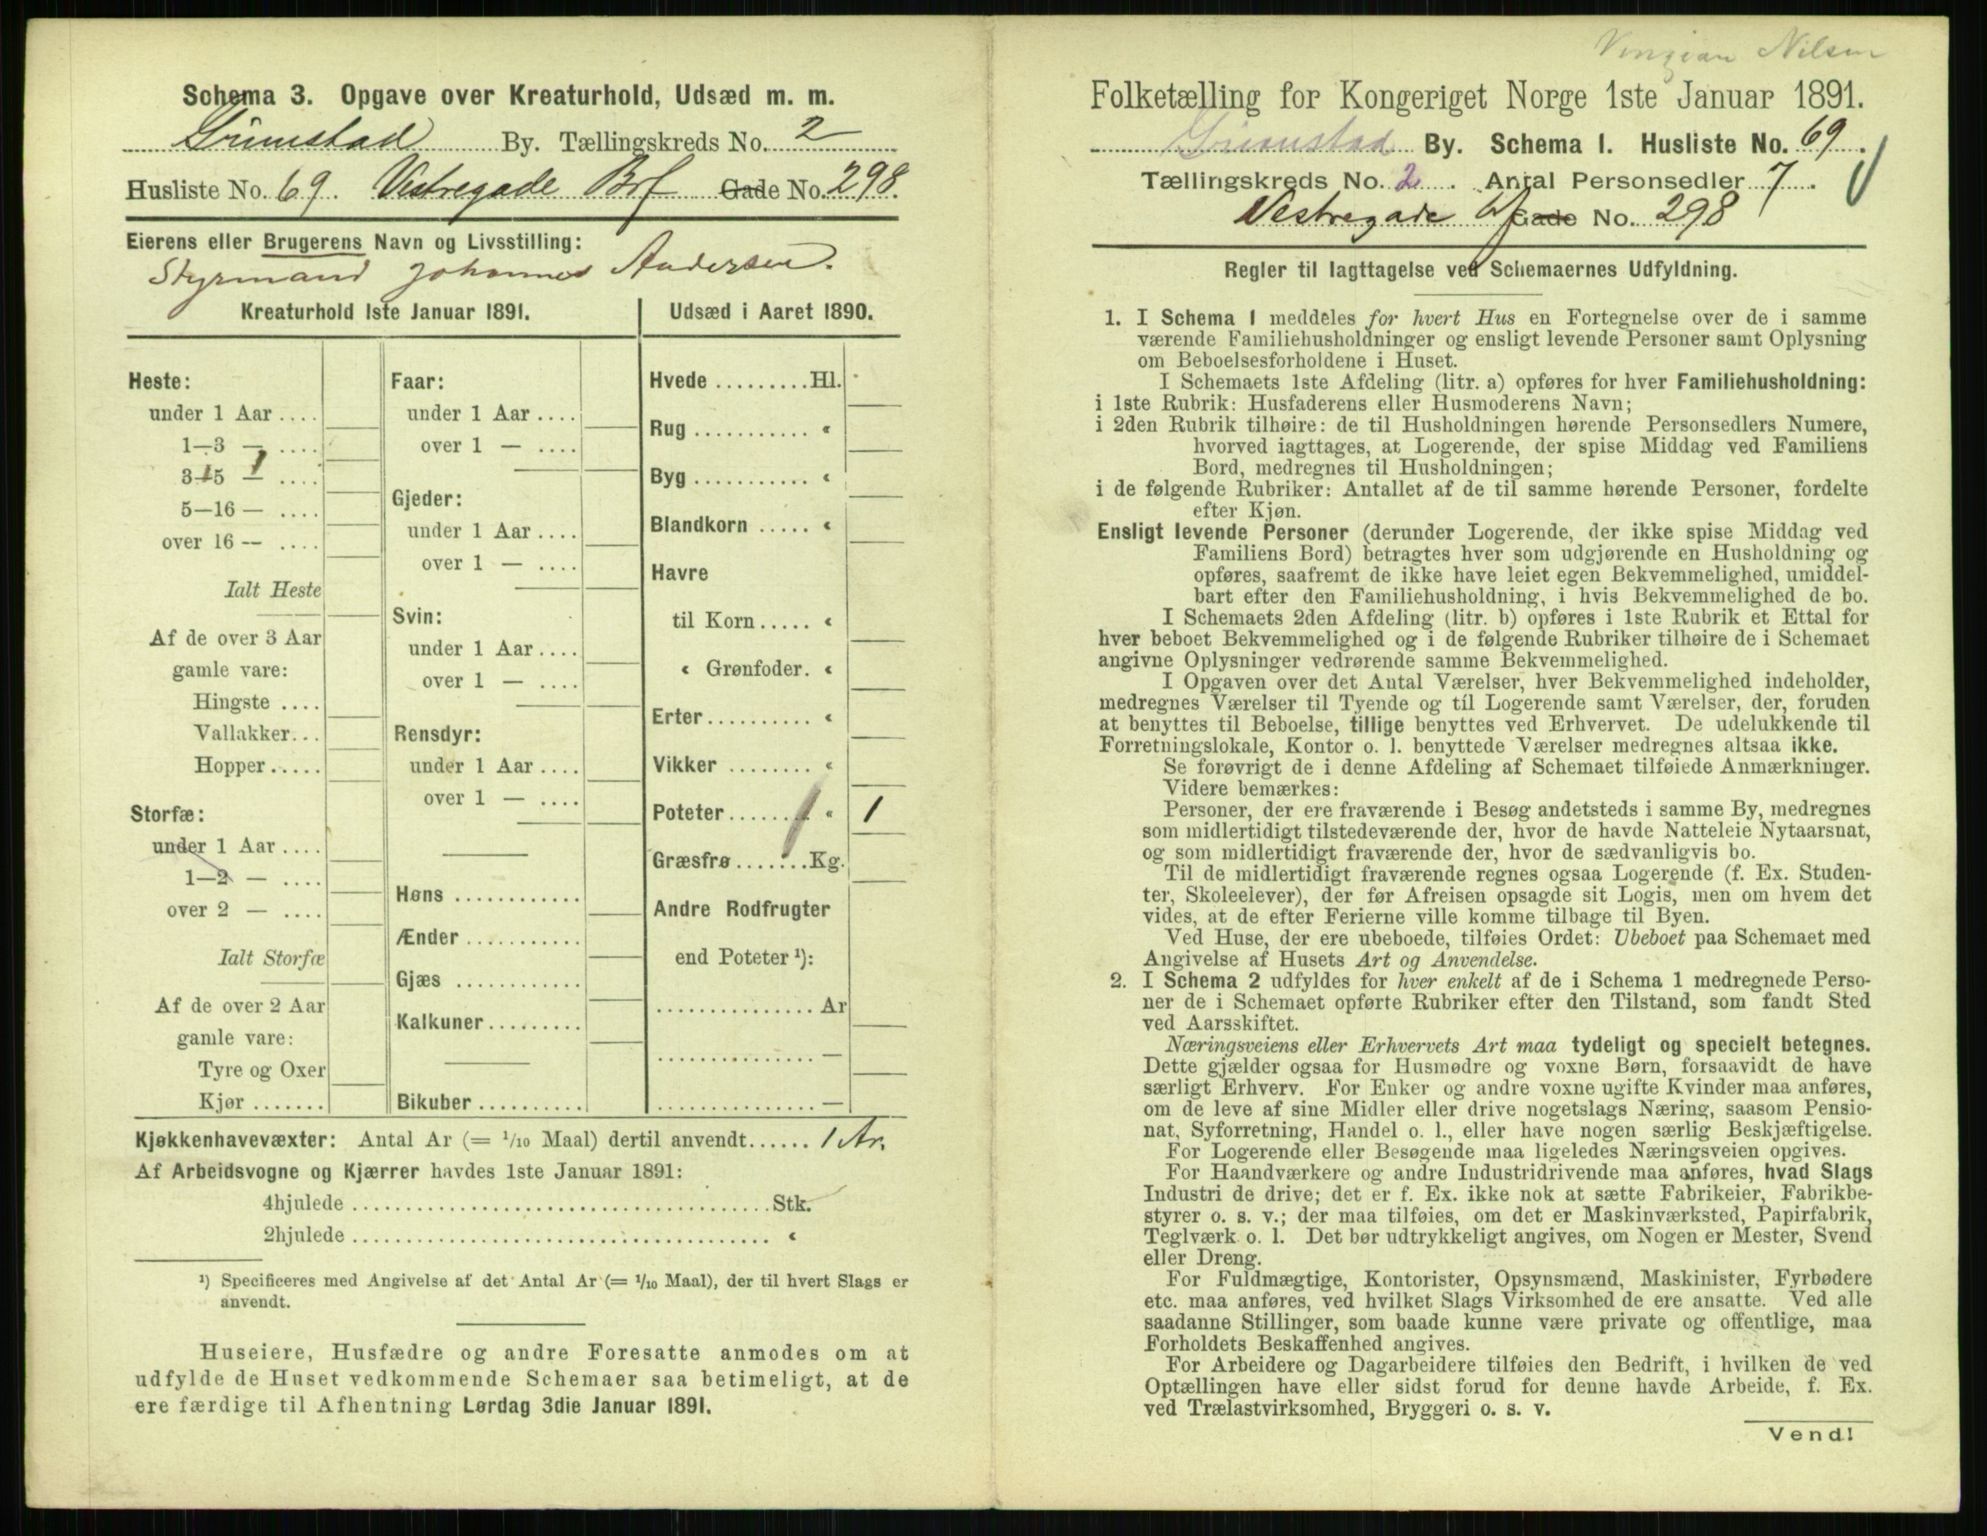 Schema 3. Opgave over Kreaturhold, Udsæd m. m.
Grimstad By. Tællingskreds No. 2
Husliste No. 69. Vestregade Brf Gade No. 298.
Eierens eller Brugerens Navn og Livsstilling:
Styrmand Johannes Andersen.
Kreaturhold 1ste Januar 1891.
Heste:
under 1 Aar ....
1—3 — ....
3—5 — ....
5—16 — ....
over 16 — ....
Ialt Heste
Af de over 3 Aar
gamle vare:
Hingste ....
Vallakker...
Hopper.....
Storfæ:
under 1 Aar ....
1—2 — ....
over 2 — ....
Ialt Storfæ
Af de over 2 Aar
gamle vare:
Tyre og Oxer
Kjør .......
Faar:
under 1 Aar ....
over 1 — ....
Gjeder:
under 1 Aar ....
over 1 — ....
Svin:
under 1 Aar ....
over 1 — ....
Rensdyr:
under 1 Aar ....
over 1 — ....
Høns ............
Ænder ...........
Gjæs ............
Kalkuner.........
Bikuber..........
Udsæd i Aaret 1890.
Hvede .........Hl.
Rug ........... «
Byg ........... «
Blandkorn ..... «
Havre
til Korn..... «
« Grønfoder. «
Erter.......... «
Vikker ........ «
Poteter........ « 1
Græsfrø.......Kg.
Andre Rodfrugter
end Poteter ¹):
............... Ar
............... —
............... —
Kjøkkenhavevæxter: Antal Ar (= 1/10 Maal) dertil anvendt...... 1 Ar.
Af Arbeidsvogne og Kjærrer havdes 1ste Januar 1891:
4hjulede .......................................Stk.
2hjulede ....................................... «
¹) Specificeres med Angivelse af det Antal Ar (= 1/10 Maal), der til hvert Slags er
anvendt.
Huseiere, Husfædre og andre Foresatte anmodes om at
udfylde de Huset vedkommende Schemaer saa betimeligt, at de
ere færdige til Afhentning Lørdag 3die Januar 1891.
Nilsen
Folketælling for Kongeriget Norge 1ste Januar 1891.
Grimstad By. Schema 1. Husliste No. 69.
Tællingskreds No. 2. Antal Personsedler 7.
Vestregade Gade No. 298
Regler til Iagttagelse ved Schemaernes Udfyldning.
1. I Schema 1 meddeles for hvert Hus en Fortegnelse over de i samme
værende Familiehusholdninger og ensligt levende Personer samt Oplysning
om Beboelsesforholdene i Huset.
I Schemaets 1ste Afdeling (litr. a) opføres for hver Familiehusholdning:
i 1ste Rubrik: Husfaderens eller Husmoderens Navn;
i 2den Rubrik tilhøire: de til Husholdningen hørende Personsedlers Numere,
hvorved iagttages, at Logerende, der spise Middag ved Familiens
Bord, medregnes til Husholdningen;
i de følgende Rubriker: Antallet af de til samme hørende Personer, fordelte
efter Kjøn.
Ensligt levende Personer (derunder Logerende, der ikke spise Middag ved
Familiens Bord) betragtes hver som udgjørende en Husholdning og
opføres, saafremt de ikke have leiet egen Bekvemmelighed, umiddel-
bart efter den Familiehusholdning, i hvis Bekvemmelighed de bo.
I Schemaets 2den Afdeling (litr. b) opføres i 1ste Rubrik et Ettal for
hver beboet Bekvemmelighed og i de følgende Rubriker tilhøire de i Schemaet
angivne Oplysninger vedrørende samme Bekvemmelighed.
I Opgaven over det Antal Værelser, hver Bekvemmelighed indeholder,
medregnes Værelser til Tyende og til Logerende samt Værelser, der, foruden
at benyttes til Beboelse, tillige benyttes ved Erhvervet. De udelukkende til
Forretningslokale, Kontor o. l. benyttede Værelser medregnes altsaa ikke.
Se forøvrigt de i denne Afdeling af Schemaet tilføiede Anmærkninger.
Videre bemærkes:
Personer, der ere fraværende i Besøg andetsteds i samme By, medregnes
som midlertidigt tilstedeværende der, hvor de havde Natteleie Nytaarsnat,
og som midlertidigt fraværende der, hvor de sædvanligvis bo.
Til de midlertidigt fraværende regnes ogsaa Logerende (f. Ex. Studen-
ter, Skoleelever), der før Afreisen opsagde sit Logis, men om hvem det
vides, at de efter Ferierne ville komme tilbage til Byen.
Ved Huse, der ere ubeboede, tilføies Ordet: Ubeboet paa Schemaet med
Angivelse af Husets Art og Anvendelse.
2. I Schema 2 udfyldes for hver enkelt af de i Schema 1 medregnede Perso-
ner de i Schemaet opførte Rubriker efter den Tilstand, som fandt Sted
ved Aarsskiftet.
Næringsveiens eller Erhvervets Art maa tydeligt og specielt betegnes.
Dette gjælder ogsaa for Husmødre og voxne Børn, forsaavidt de have
særligt Erhverv. For Enker og andre voxne ugifte Kvinder maa anføres,
om de leve af sine Midler eller drive nogetslags Næring, saasom Pensio-
nat, Syforretning, Handel o. l., eller have nogen særlig Beskjæftigelse.
For Logerende eller Besøgende maa ligeledes Næringsveien opgives.
For Haandværkere og andre Industridrivende maa anføres, hvad Slags
Industri de drive; det er f. Ex. ikke nok at sætte Fabrikeier, Fabrikbe-
styrer o. s. v.; der maa tilføies, om det er Maskinværksted, Papirfabrik,
Teglværk o. l. Det bør udtrykkeligt angives, om Nogen er Mester, Svend
eller Dreng.
For Fuldmægtige, Kontorister, Opsynsmænd, Maskinister, Fyrbødere
etc. maa anføres, ved hvilket Slags Virksomhed de ere ansatte. Ved alle
saadanne Stillinger, som baade kunne være private og offentlige, maa
Forholdets Beskaffenhed angives.
For Arbeidere og Dagarbeidere tilføies den Bedrift, i hvilken de ved
Optællingen have eller sidst forud for denne havde Arbeide, f. Ex.
ved Trælastvirksomhed, Bryggeri o. s. v.
Vend!